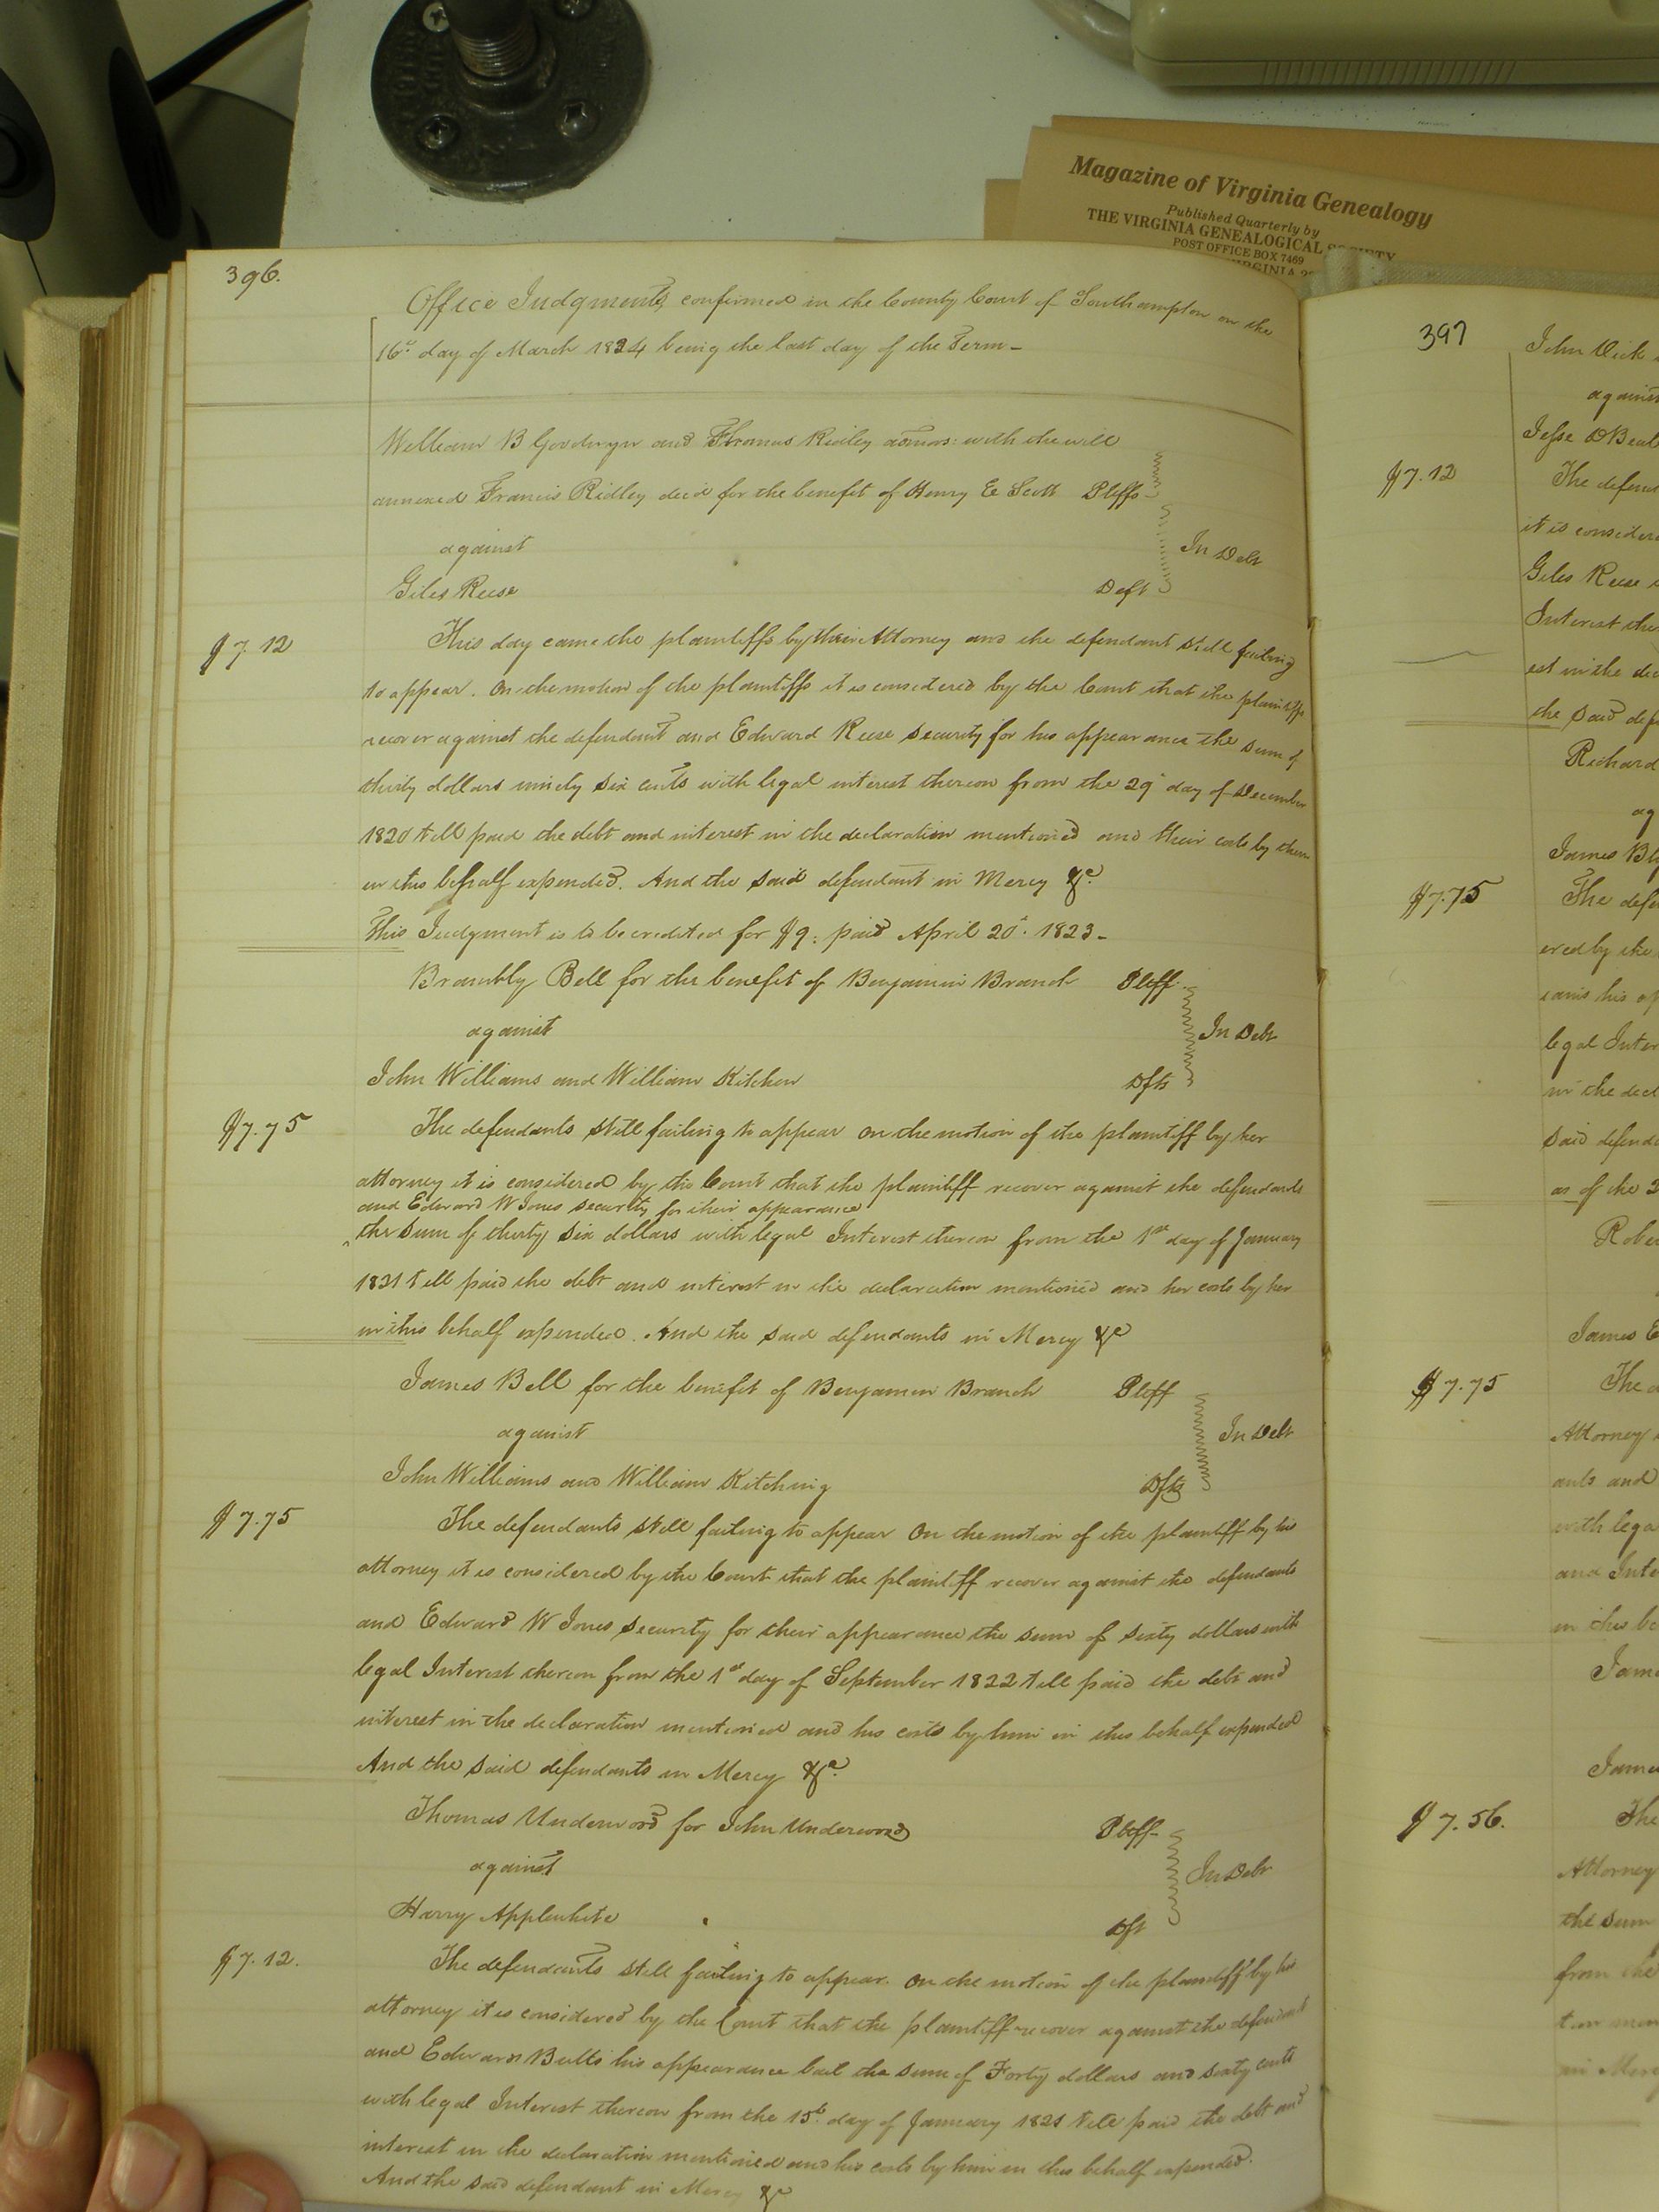 Magazine of Virginia Genealogy
Published Quarterly by
THE VIRGINIA GENEALOGICAL SOCIETY
POST OFFICE BOX 7469
396.
Office Judgments confirmed in the County Court of Southampton on the
16th day of March 1824 being the last day of the Term -
William B Goodwyn and Thomas Ridley admors: with the will
annexed Francis Ridley decd for the benefit of Henry E Scott Pltffs
against
In Debt
Giles Reese Deft
$7.12
This day came the plaintiffs by their Attorney and the defendant still failing
to appear. On the motion of the plaintiffs it is considered by the Court that the plaintiffs
recover against the defendant and Edward Reese security for his appearance the sum of
thirty dollars ninety six cents with legal interest thereon from the 29th day of December
1820 till paid the debt and interest in the declaration mentioned and their costs by them
in this behalf expended. And the said defendant in Mercy &c.
This Judgment is to be credited for $9: paid April 20th 1823 -
Brambly Bell for the benefit of Benjamin Branch Pltff
against
In Debt
John Williams and William Kitchen Dfts
$7.75
The defendants still failing to appear On the motion of the plaintiff by her
attorney it is considered by the Court that the plaintiff recover against the defendants
and Edward W Jones security for their appearance
the sum of thirty six dollars with legal Interest thereon from the 1st day of January
1821 till paid the debt and interest in the declaration mentioned and her costs by her
in this behalf expended. And the said defendants in Mercy &c
James Bell for the benefit of Benjamin Branch Pltff
against
In Debt
John Williams and William Kitching Dfts
$7.75
The defendants still failing to appear On the motion of the plaintiff by his
attorney it is considered by the Court that the plaintiff recover against the defendants
and Edward W Jones security for their appearance the sum of sixty dollars with
legal Interest thereon from the 1st day of September 1822 till paid the debt and
interest in the declaration mentioned and his costs by him in this behalf expended
And the said defendants in Mercy &c.
Thomas Underwood for John Underwood Pltff
against
In Debt
Harry Applewhite Dft
$7.12.
The defendants still failing to appear. On the motion of the plaintiff by his
attorney it is considered by the Court that the plaintiff recover against the defendant
and Edward Butts his appearance bail the sum of Forty dollars and sixty cents
with legal Interest thereon from the 15th day of January 1821 till paid the debt and
interest in the declaration mentioned and his costs by him in this behalf expended.
And the said defendant in Mercy &c
397
John Dick
against
Jesse
$7.12
The defen
it is consider
Giles Reese
Interest the
est in the dec
the said def
Richard
ag
James
$7.75
The defe
ered by the
legal Inter
in the decl
said defend
as of the
Rober
James E
$7.75
The
Attorney
ants and
with lega
and Inte
in this be
Jame
Jame
$7.56.
The
Attorney
the sum
from the
in Merc